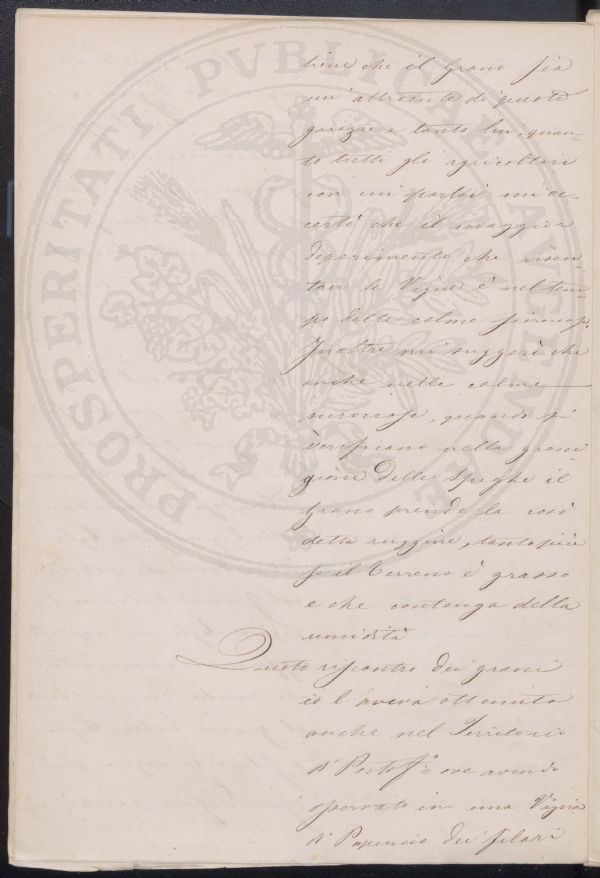 PROSPERITATI PUBLICAE AUGENDAE
tiene che il grano sia
un' attraente di queste
e tanto lui, quan-
to tutti gli agricoltori
con cui parlai mi ac-
certò che il maggior
deperimento che risen-
tano le Vigne è nel tem-
po delle calme sciroccose.
Inoltre mi suggerì che
anche nelle calme
quando si
verificano nella grani-
gione delle Spighe il
grano prende la così
detta ruggine, tantopiù
se il terreno è grasso
e che contenga della
umidità
Questo riscontro dei grani
io l'aveva ottenuto
anche nel Territorio
di Portof.° ove avendo
osservato in una Vigna
di dei filari